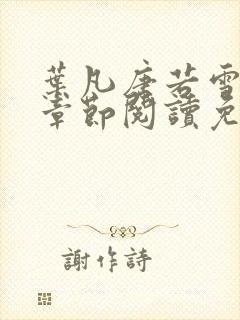 葉凡唐若雪
章節閱讀免
謝作詩